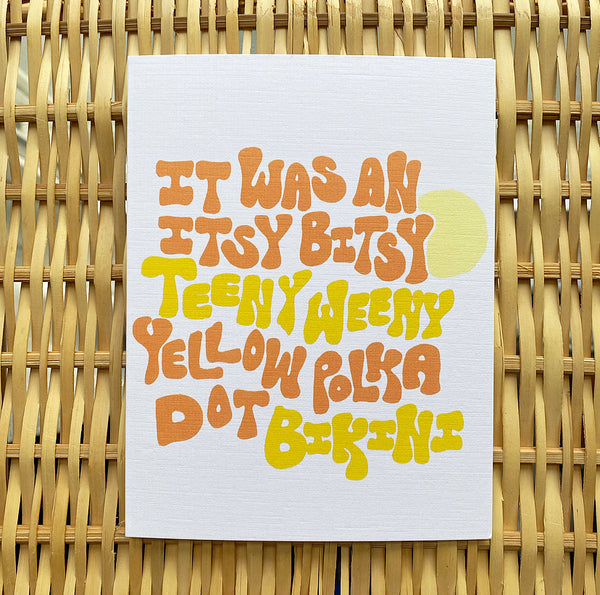 IT WAS AN
ITSY BITSY
TEENY WEENY
YELLOW POLKA
DOT BIKINI